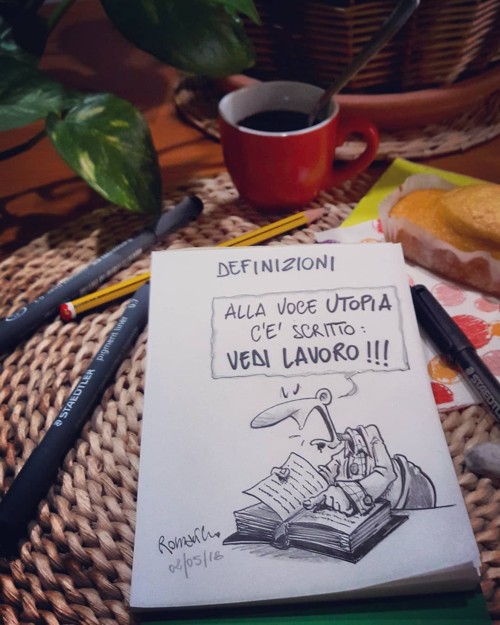 DEFINIZIONI
ALLA VOCE UTOPIA
C'E' SCRITTO:
VEDI LAVORO!!!
02/05/18
STAEDTLER pigment liner 0.7